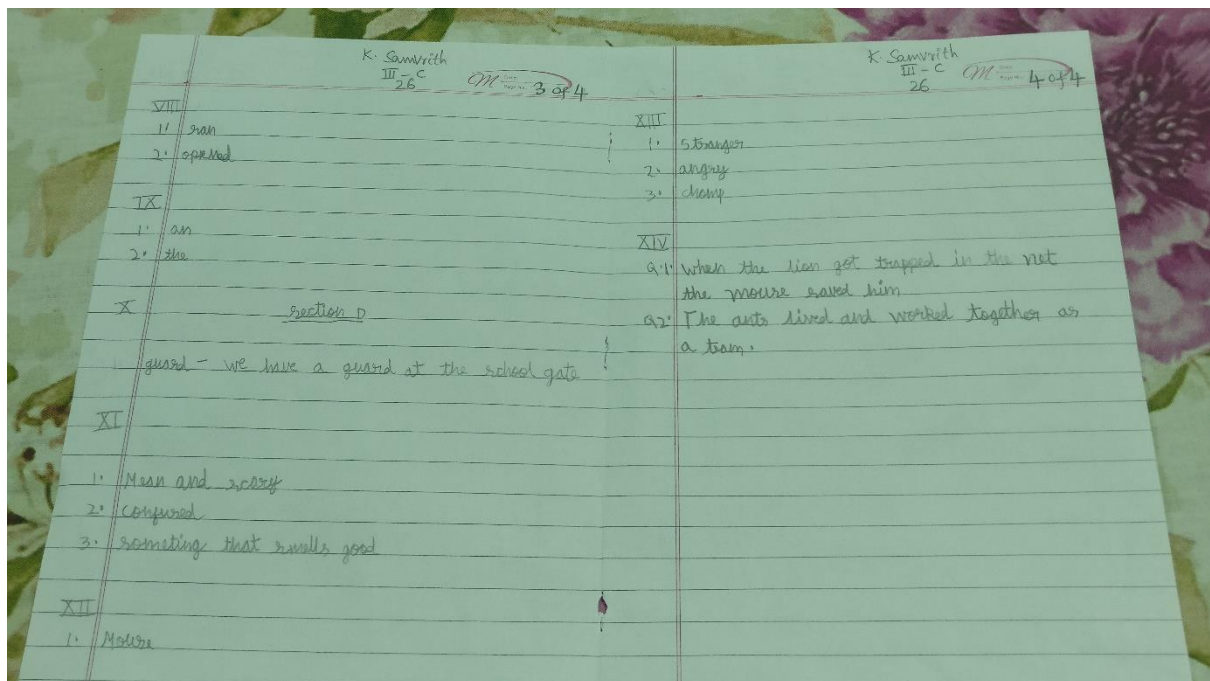 K. Samvrith
III - C
26
3 of 4
VIII
1. ran
2. opened
IX
1. an
2. the
X
section D
guard - we have a guard at the school gate
XI
1. Mean and scary
2. confused
3. someting that smells good
XII
1. Mouse
K. Samvrith
III - C
26
4 of 4
XIII
1. Stranger
2. angry
3. chomp
XIV
Q.1. When the lion got trapped in the net
the mouse saved him
Q2. The ants lived and worked together as
a team.